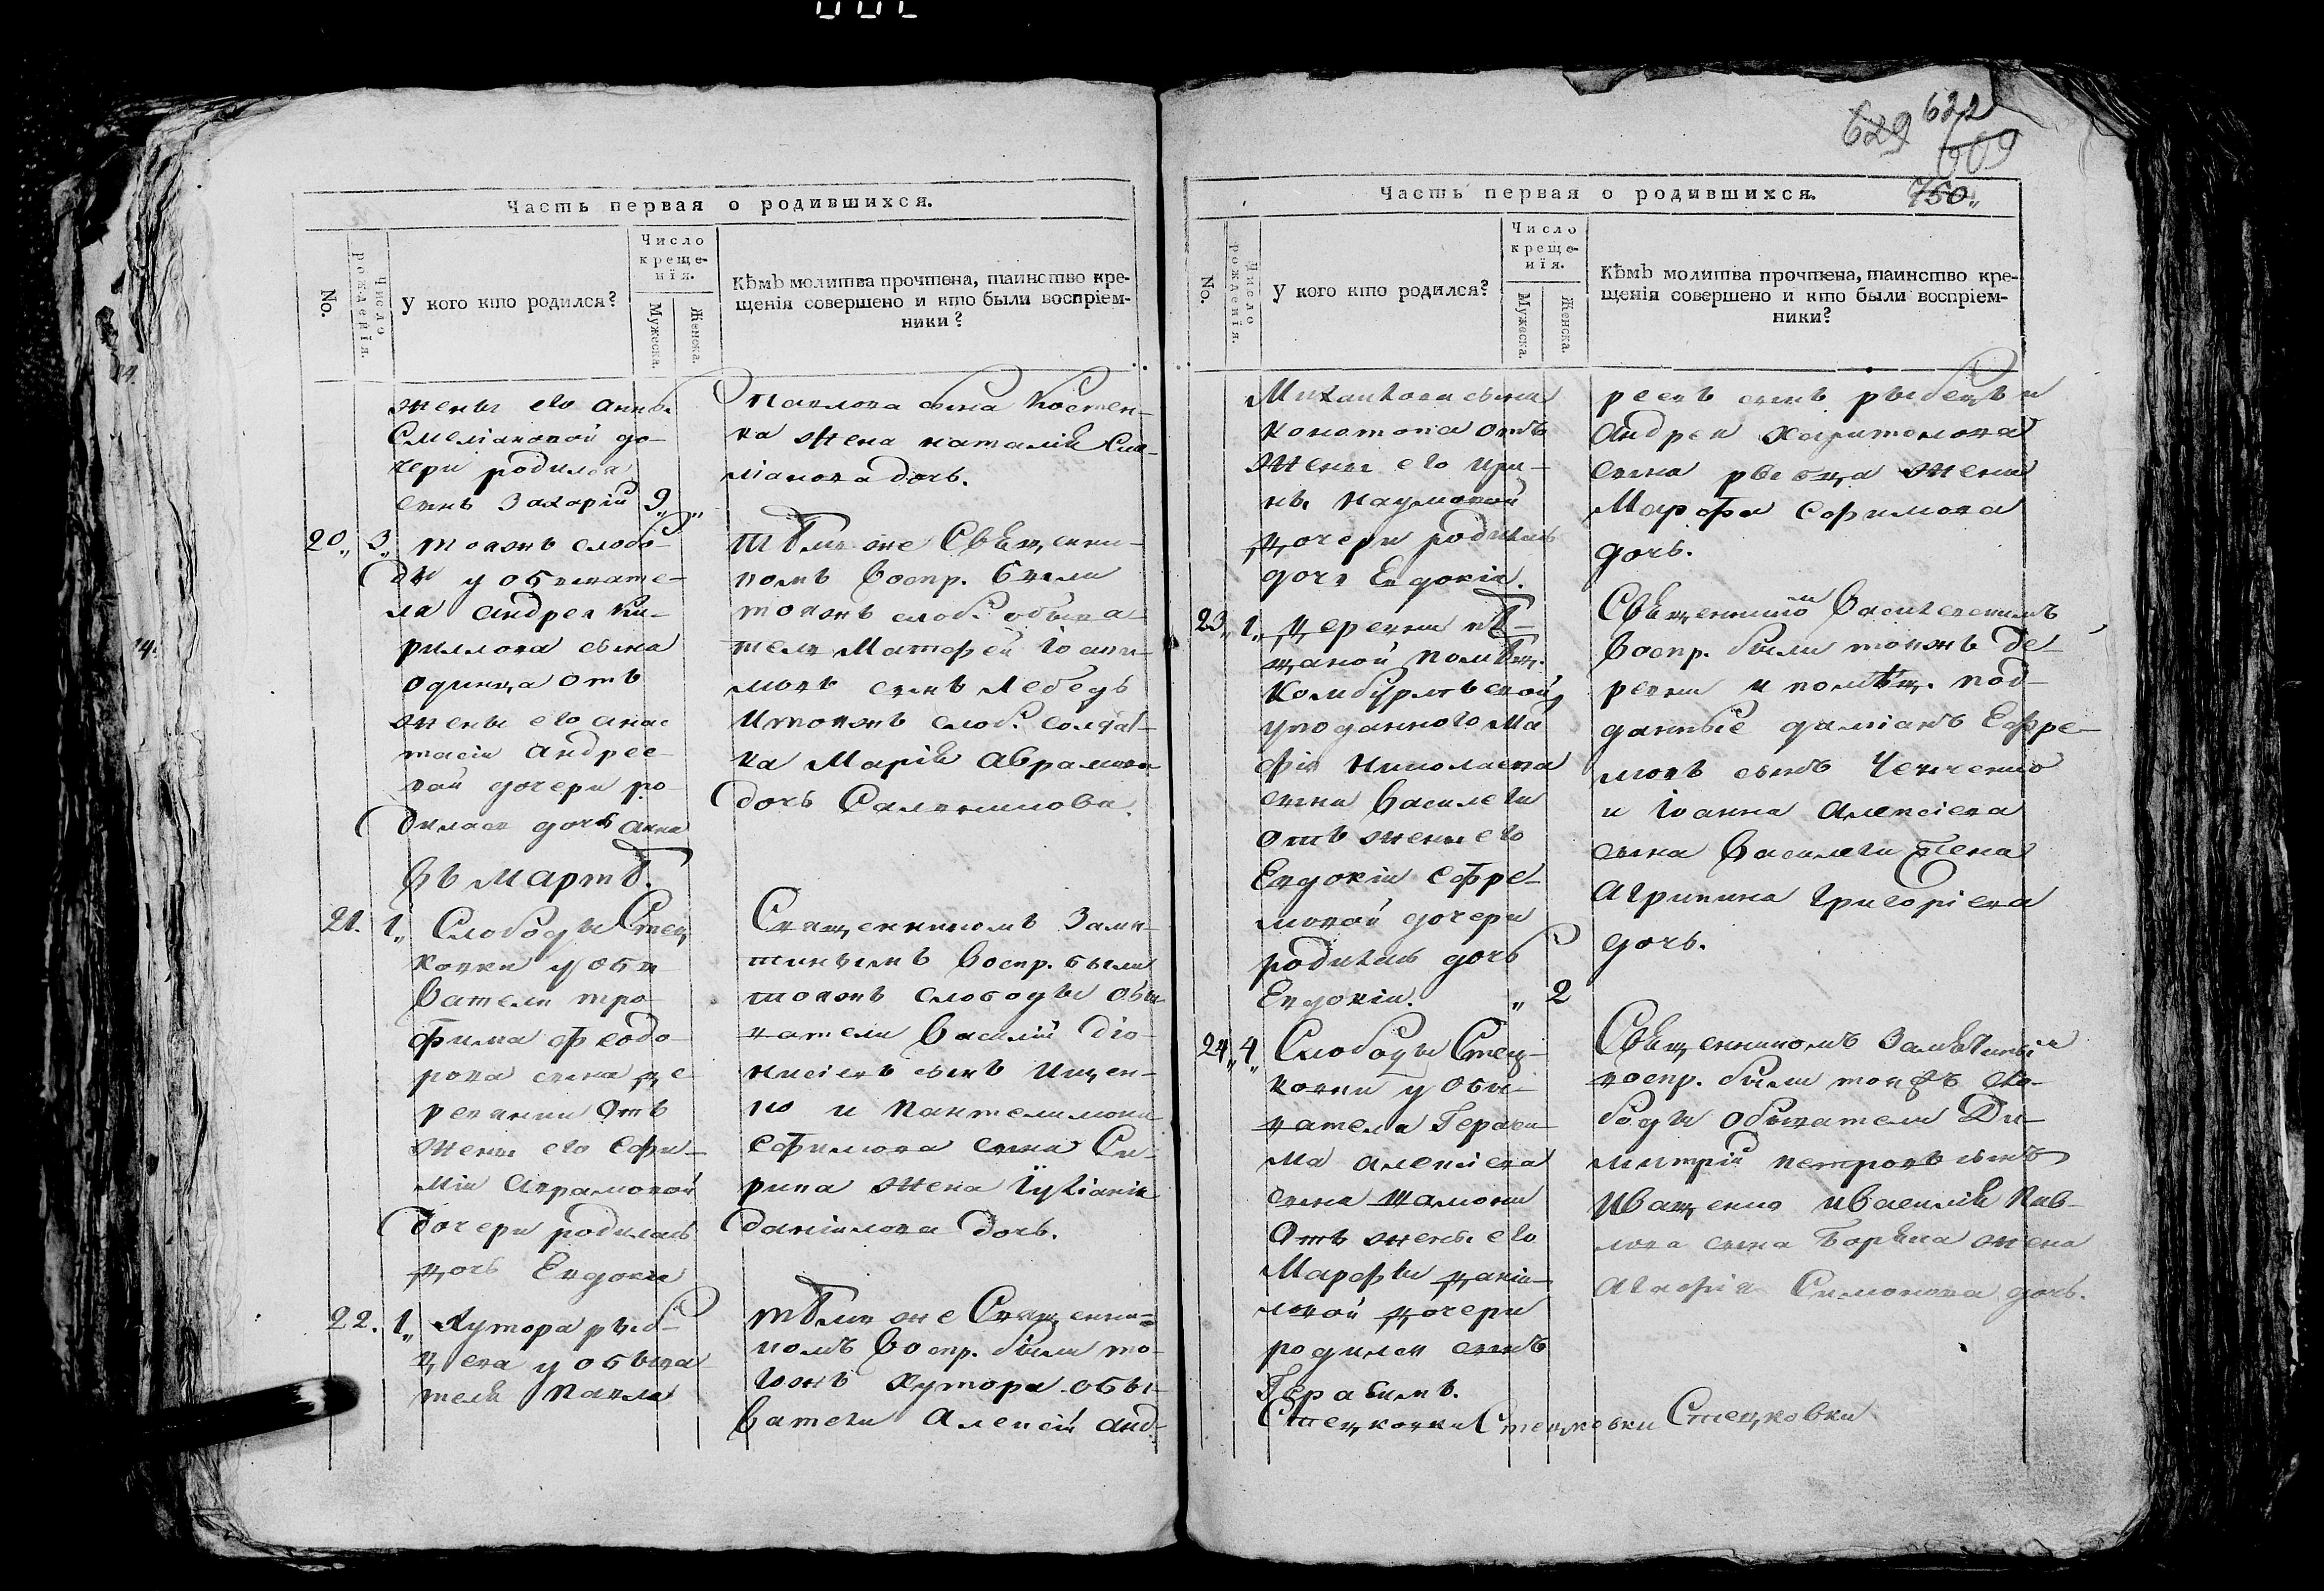 Часть первая о родившихся.
No.
Число рожденїя.
У кого кто родился?
Число
креще-
нїя.
Мужеска.
Женска.
Кѣмъ молитва прочтена, таинство кре-
щенїя совершено и кто были воспрїем-
ники?
жены его анны
Смелїановой до-
чери родился
сынъ Захарїй 9„ „
Павлова сына Костен-
ка жена наталїя
дочь.
20„ 3„ тояжъ слобо-
ды у обывате-
ля андрея Ки-
риллова сына
одинца отъ
жены его анас
тасїи андрее-
вой дочери ро-
дилась дочь анна
тѣмъ же Священни-
комъ воспр. были
тояжъ слоб. обыва-
тель Матфей
сынъ Лебедь
и тояжъ слоб. солдат-
ка Марїя Аврамова
дочь
въ Мартѣ.
21. 1„ Слободы Стец
ковки у обы
вателя тро
фима феодо-
рова сына де
ревянки отъ
жены его Ефи-
мїи Аврамовой
дочери родилась
дочь Евдокия
Священникомъ
воспр. были
тояжъ слободы обы
ватели Василїй Дїо-
нисїевъ сынъ Ищен-
ко и Пантелимона
Ефимова сына Си-
рика жена Іулїанїя
данїилова дочь.
22. 1„ Хутора рыб-
цева у обыва
теля Павла
тѣмъ же Священни-
комъ воспр. были то-
гожъ хутора обы-
ватели Алексїй анд-
629 622
609
750„
Часть первая о родившихся.
No.
Число рожденїя.
У кого кто родился?
Число
креще-
нїя.
Мужеска.
Женска.
Кѣмъ молитва прочтена, таинство кре-
щенїя совершено и кто были воспрїем-
ники?
Михайлова сына
конотопа отъ
жены его Ири-
ны Наумовой
дочери родилась
дочь Евдокїя.
реевъ сынъ рыбецъ и
андрея харитонова
сына рыбца жена
Марфа Ефимова
дочь.
23„ 1„ деревни
помѣщ.
у подданного Ма
фїя Николаева
сына Василеги
отъ жены его
Евдокїи Ефре-
мовой дочери
родилась дочь
Евдокїя. „ 2
Священником
воспр. были тояжъ де
ревни и помѣщ. под-
данные дамїанъ Ефре-
мовъ сынъ
и Іоанна Алексїева
сына Василеги жена
Агрипина Григорїева
дочь.
24„ 4„ Слободы Стец-
ковки у обы-
вателя Гераси-
ма алексїева
сына
отъ жены его
Марфы данїи-
ловой дочери
родился сынъ
Герасимъ.
Священникомъ
воспр. были тоя жъ сло-
боды обыватели Ди-
митрїй петровъ сынъ
Иващенко и Василїя Пав-
лова сына жена
Агафїя Симонова дочь.
Стецковки Стецковки Стецковки